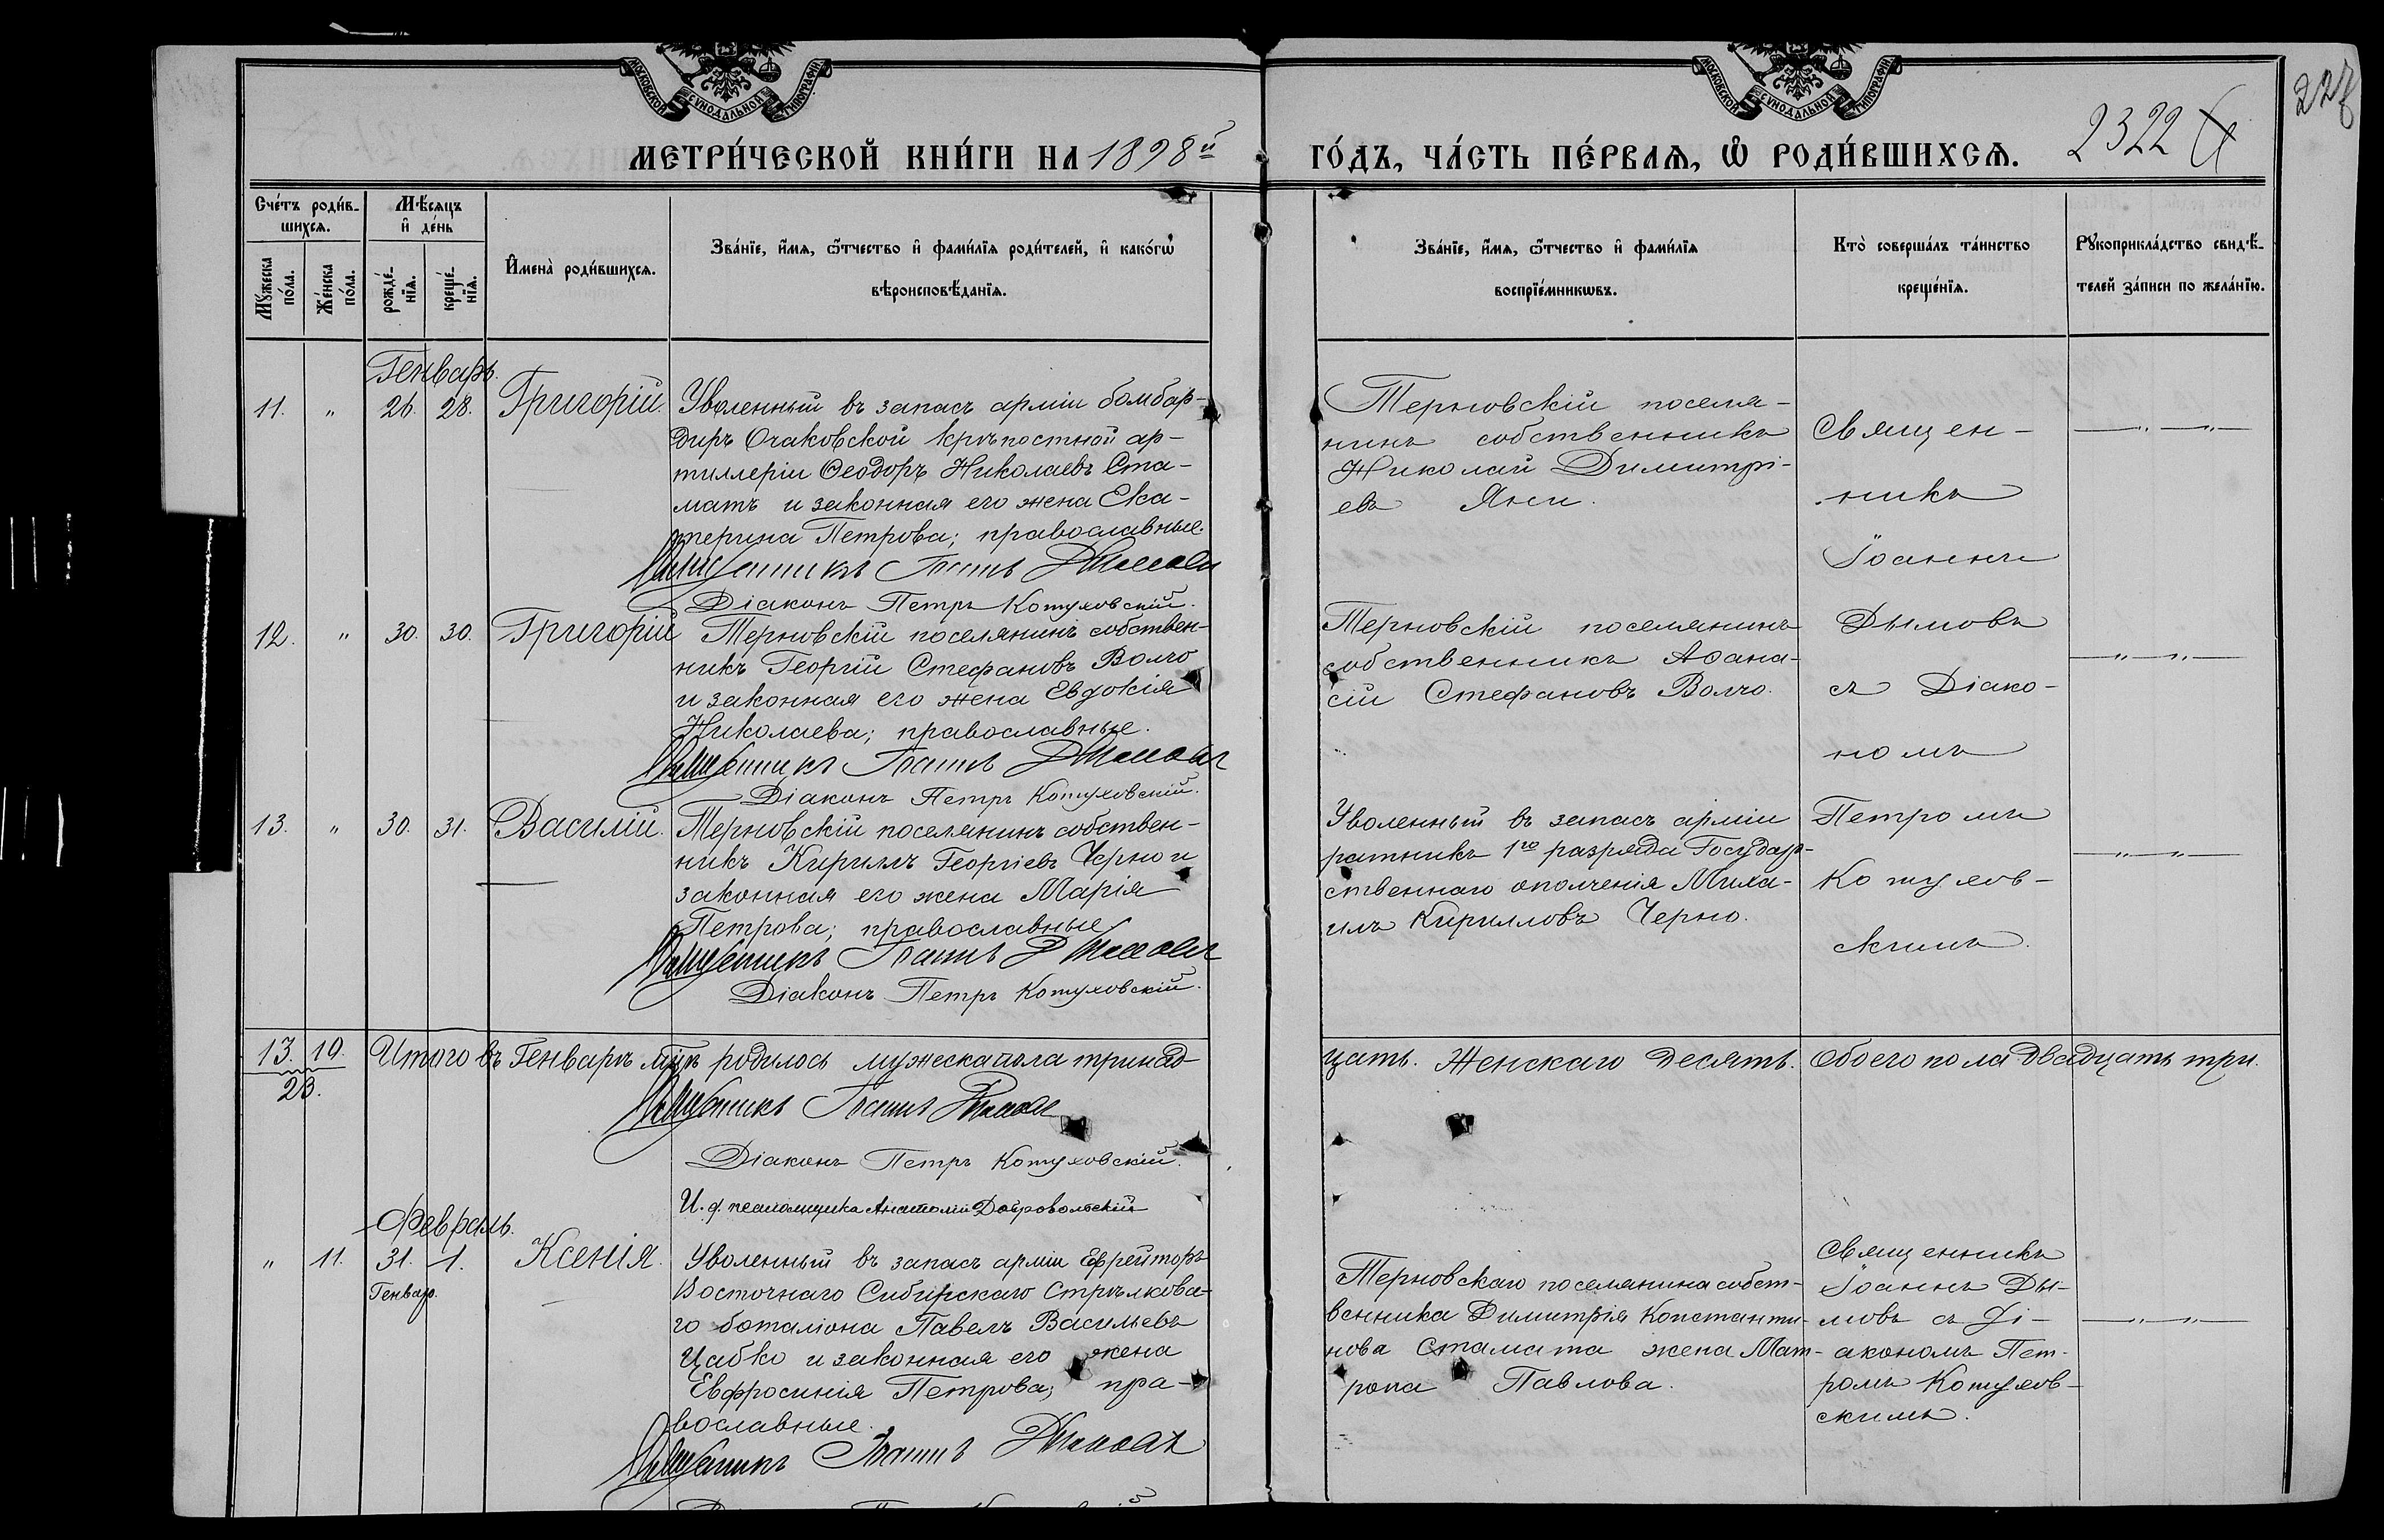 МОСКОВСКОЙ СѴНОДАЛЬНОЙ ТИПОГРАФІИ
МОСКОВСКОЙ СѴНОДАЛЬНОЙ ТИПОГРАФІИ
227
2322
МЕТРИ́ЧЕСКОЙ КНИ́ГИ НА 1898й
ГО́ДЪ, ЧА́СТЬ ПЕ́РВАѦ, Ѽ РОДИ́ВШИХСѦ.
Сче́тъ роди́в-
шихсѧ.
Мѣ́сѧцъ
и҆ де́нь
Мꙋ́жеска по́ла.
Же́нска по́ла.
рожде́-
нїѧ.
креще́-
нїѧ.
И҆мена̀ роди́вшихсѧ.
Зва́нїе, и҆́мѧ, ѻ҆́тчество и҆ фами́лїѧ роди́телей, и҆ како́гѡ
вѣроисповѣ́данїѧ.
Зва́нїе, и҆́мѧ, ѻ҆́тчество и҆ фами́лїѧ
воспрїе́мникѡвъ.
Кто̀ соверша́лъ та́инство
креще́нїѧ.
Рꙋкоприкла́дство свидѣ́-
телей за́писи по жела́нїю.
Генварь.
11. " 26. 28. Григорій.
Уволенный въ запасъ арміи бомбар-
диръ Очаковской крѣпостной ар-
тиллеріи Ѳеодоръ Николаевъ Ста-
матъ и законная его жена Ека-
терина Петрова; православные.
Священникъ Іоаннъ Дымовъ
Діаконъ Петръ Котуховскій.
Терновскій поселя-
нинъ собственникъ
Николай Димитрі-
евъ Яни.
Священ-
никъ
Іоаннъ
Дымовъ
съ Діако-
номъ
Петромъ
Котухов-
скимъ.
12. " 30. 30. Григорій
Терновскій поселянинъ собствен-
никъ Георгій Стефановъ Волчо
и законная его жена Евдокія
Николаева; православные.
Священникъ Іоаннъ Дымовъ
Діаконъ Петръ Котуховскій.
Терновскій поселянинъ
собственникъ Аѳана-
сій Стефановъ Волчо.
13. " 30. 31. Василій.
Терновскій поселянинъ собствен-
никъ Кириллъ Георгіевъ Черно и
законная его жена Марія
Петрова; православные
Священникъ Іоаннъ Дымовъ
Діаконъ Петръ Котуховскій.
Уволенный въ запасъ арміи
ратникъ 1го разряда Государ-
ственнаго ополченія Миха-
илъ Кирилловъ Черно.
13. 10. Итого въ Генварѣ м-цѣ родилось мужеска пола тринад-
цать. Женскаго десять. Обоего пола двадцать три.
23.
Священникъ Іоаннъ Дымовъ
Діаконъ Петръ Котуховскій.
И. д. псаломщика Анатолій Добровольскій
Февраль.
" 11. 31. 1. Ксенія.
Генвар.
Уволенный въ запасъ арміи Ефрейторъ
Восточнаго Сибирскаго Стрѣлкова-
го боталіона Павелъ Васильевъ
Цабко и законная его жена
Евфросинія Петрова; пра-
вославные.
Священникъ Іоаннъ Дымовъ
Терновскаго поселянина собст-
венника Димитрія Константи-
нова Стамата жена Мат-
рона Павлова.
Священникъ
Іоаннъ Ды-
мовъ съ Ді-
акономъ Пет-
ромъ Котухов-
скимъ.